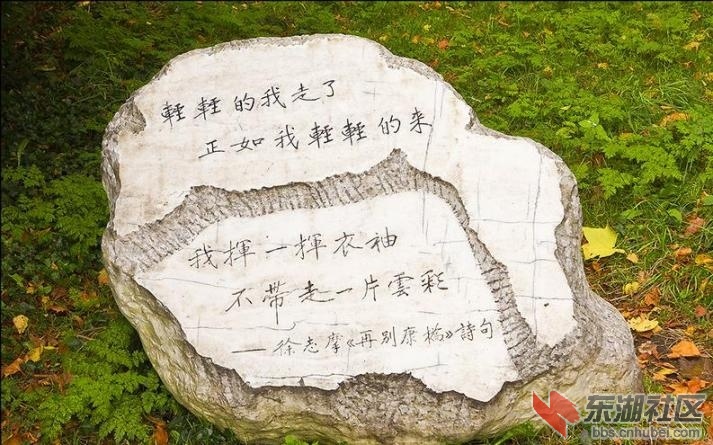 輕輕的我走了
正如我輕輕的来
我揮一揮衣袖
不帶走一片雲彩
——徐志摩《再别康橋》詩句
东湖社区
bbs.cnhubei.com